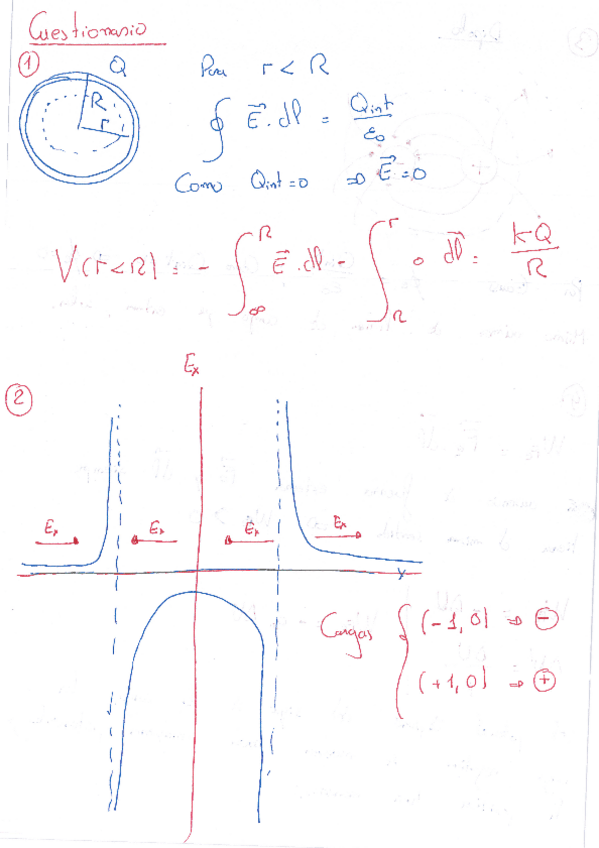 Cuestionario
1
Q
Para r < R
R
r
∮ E⃗ . dl = Qint / ε₀
Como Qint = 0 ⇒ E⃗ = 0
V(r<R) = - ∫_∞^R E⃗ . dl - ∫_R^r 0 dl⃗ = k·Q / R
Ex
2
Ex Ex Ex Ex
x
Cargas { (-1, 0) ⇒ ⊖
(+1, 0) ⇒ ⊕